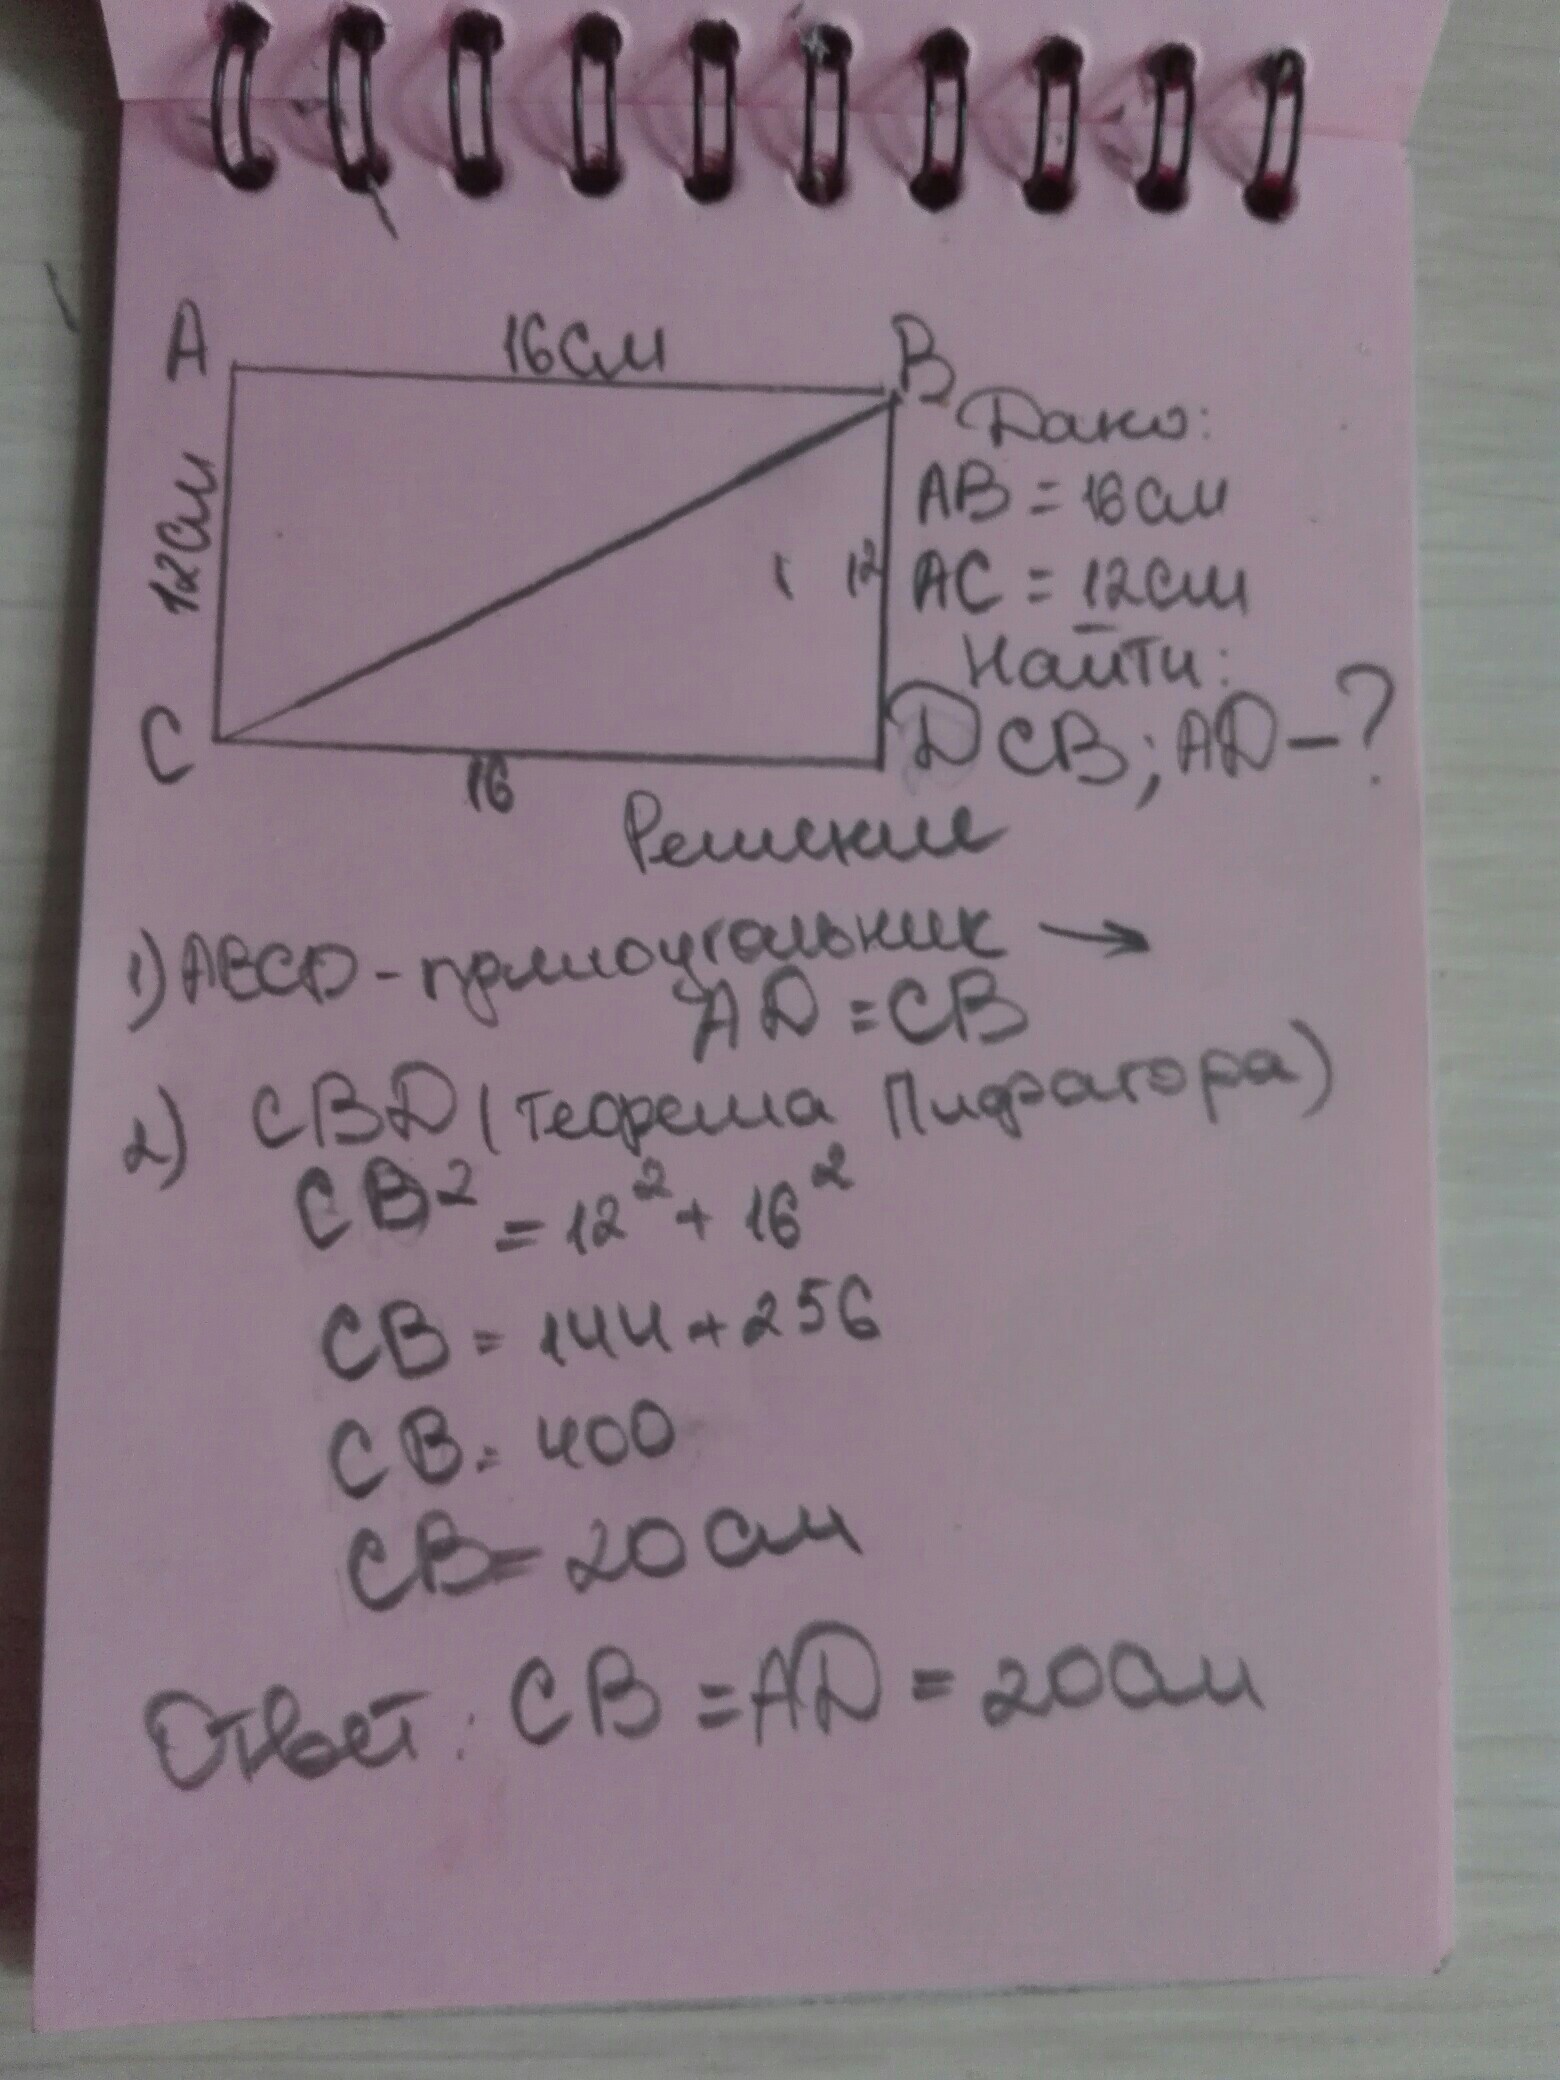 A 16см B
Дано:
12см
AB = 16см
12
AC = 12см
Найти:
C
D
CB; AD - ?
16
Решение
1) ABCD - прямоугольник →
AD = CB
2) CBD (теорема Пифагора)
CB² = 12² + 16²
CB = 144 + 256
CB = 400
CB = 20см
Ответ: CB = AD = 20см